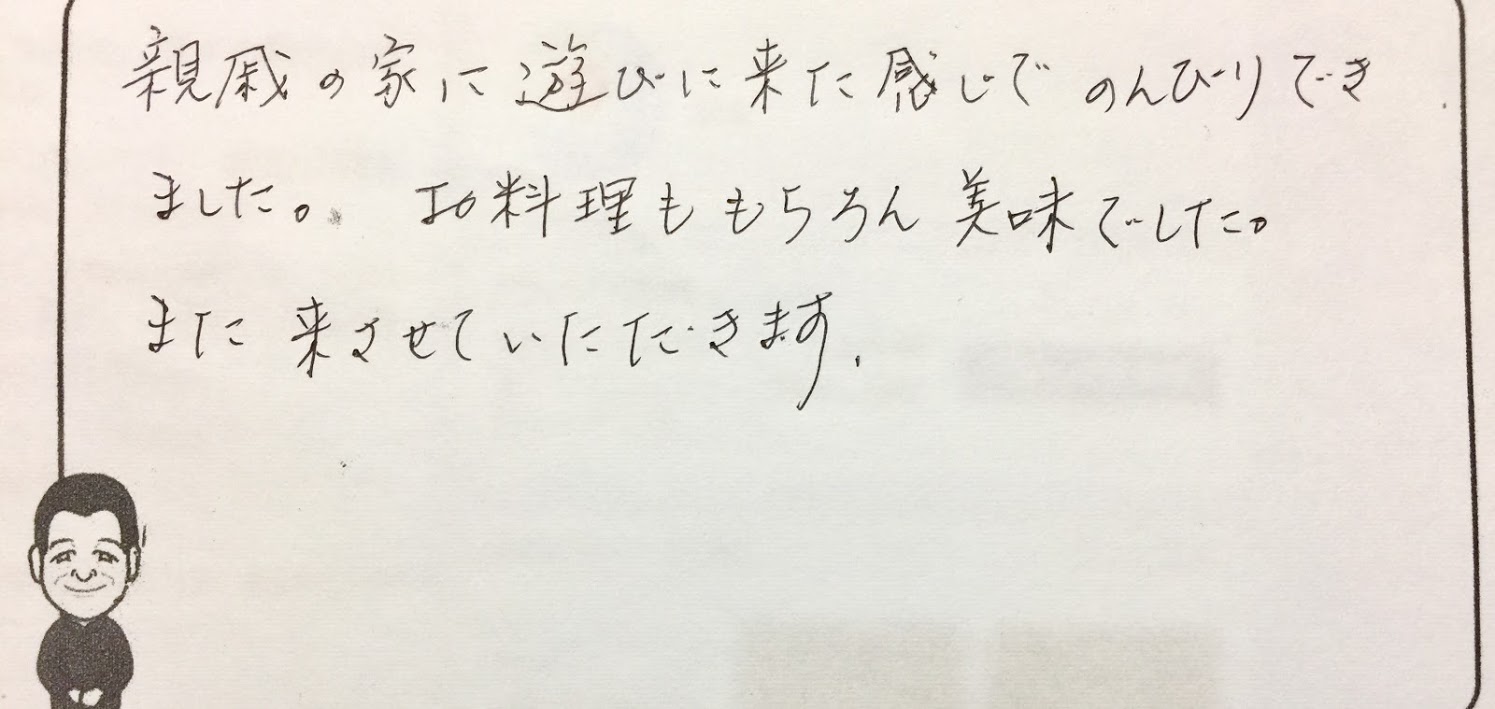 親戚の家に遊びに来た感じでのんびりでき
ました。お料理ももちろん美味でした。
また来させていただきます.